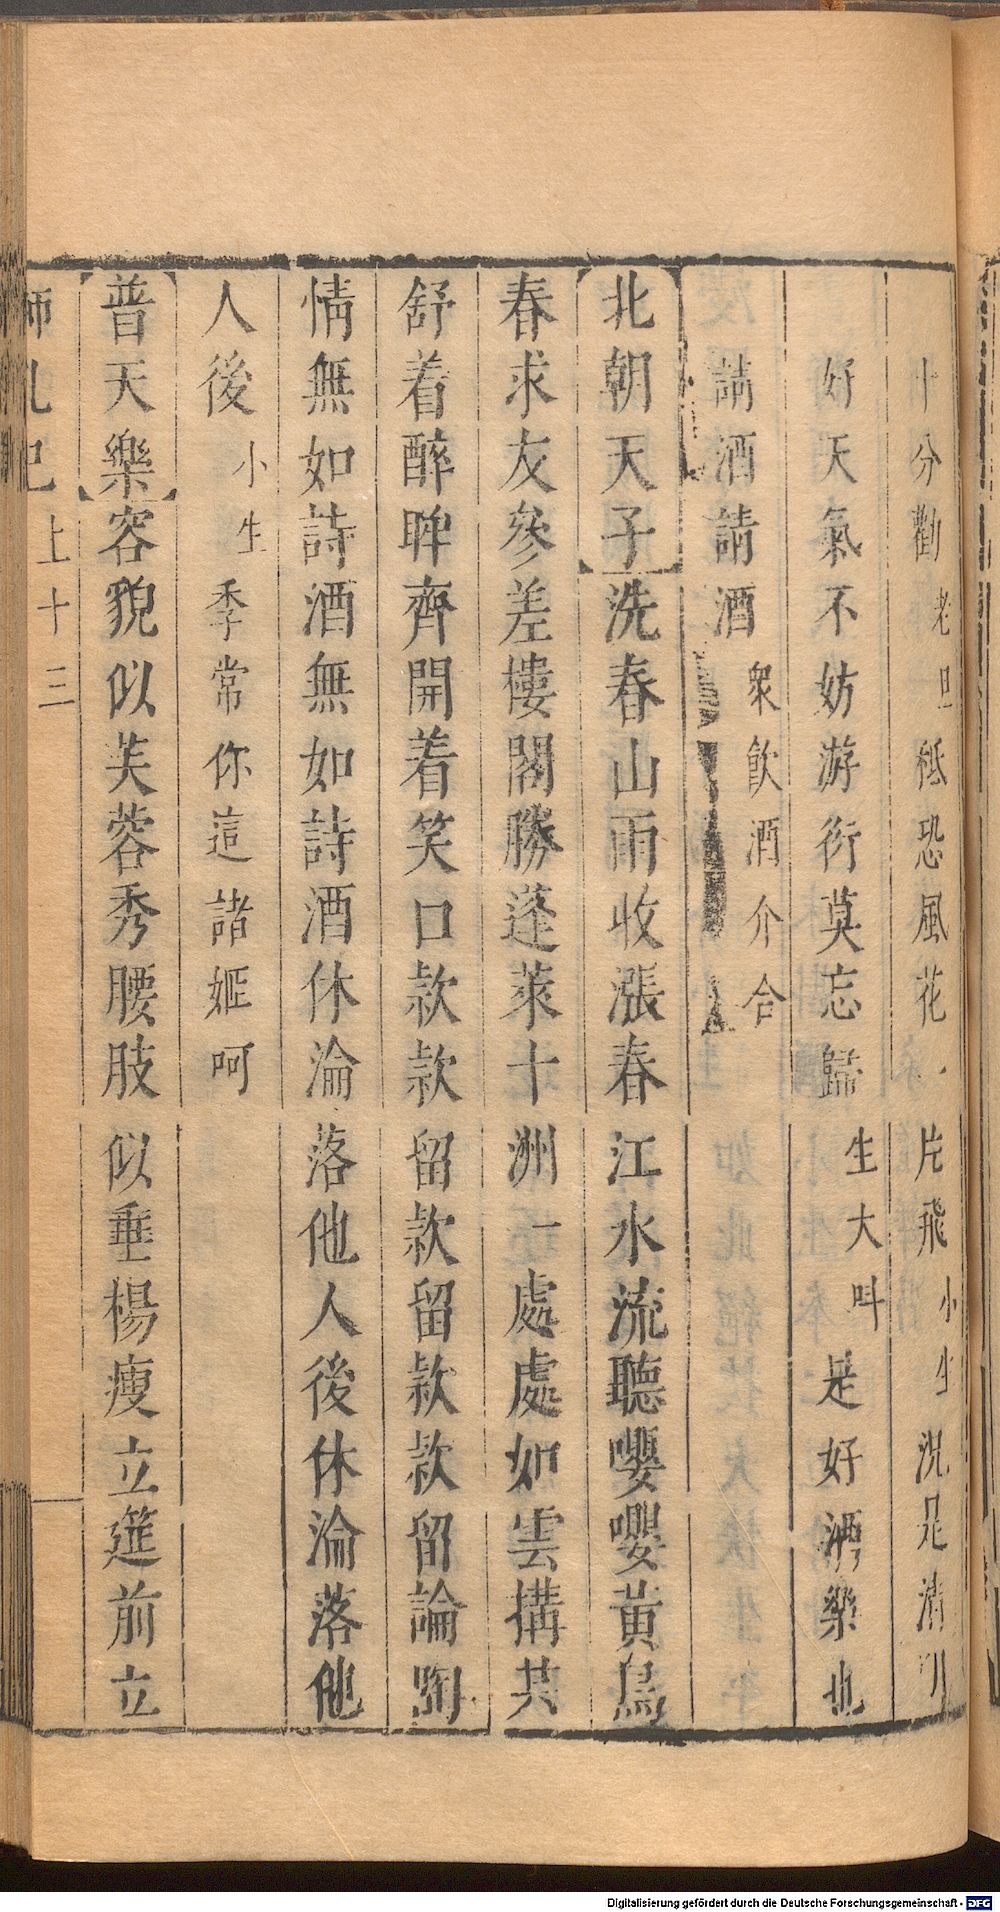 十分勸老旦秪恐風花一片飛小生況是清明
好天氣不妨游衍莫忘歸生大呌是好酒樂也
請酒請酒衆飲酒介合
【北朝天子】洗春山雨收漲春江水流聽嚶嚶黃鳥
春求友參差樓閣勝蓬萊十洲一處處如雲搆共
舒着醉眸齊開着笑口款款留款留款款留論陶
情無如詩酒無如詩酒休淪落他人後休淪落他
人後小生季常你這諸姬呵
【普天樂】容貌似芙蓉秀腰肢似垂楊瘦立筵前立
師乳巳上十三
Digitalisierung gefördert durch die Deutsche Forschungsgemeinschaft - DFG